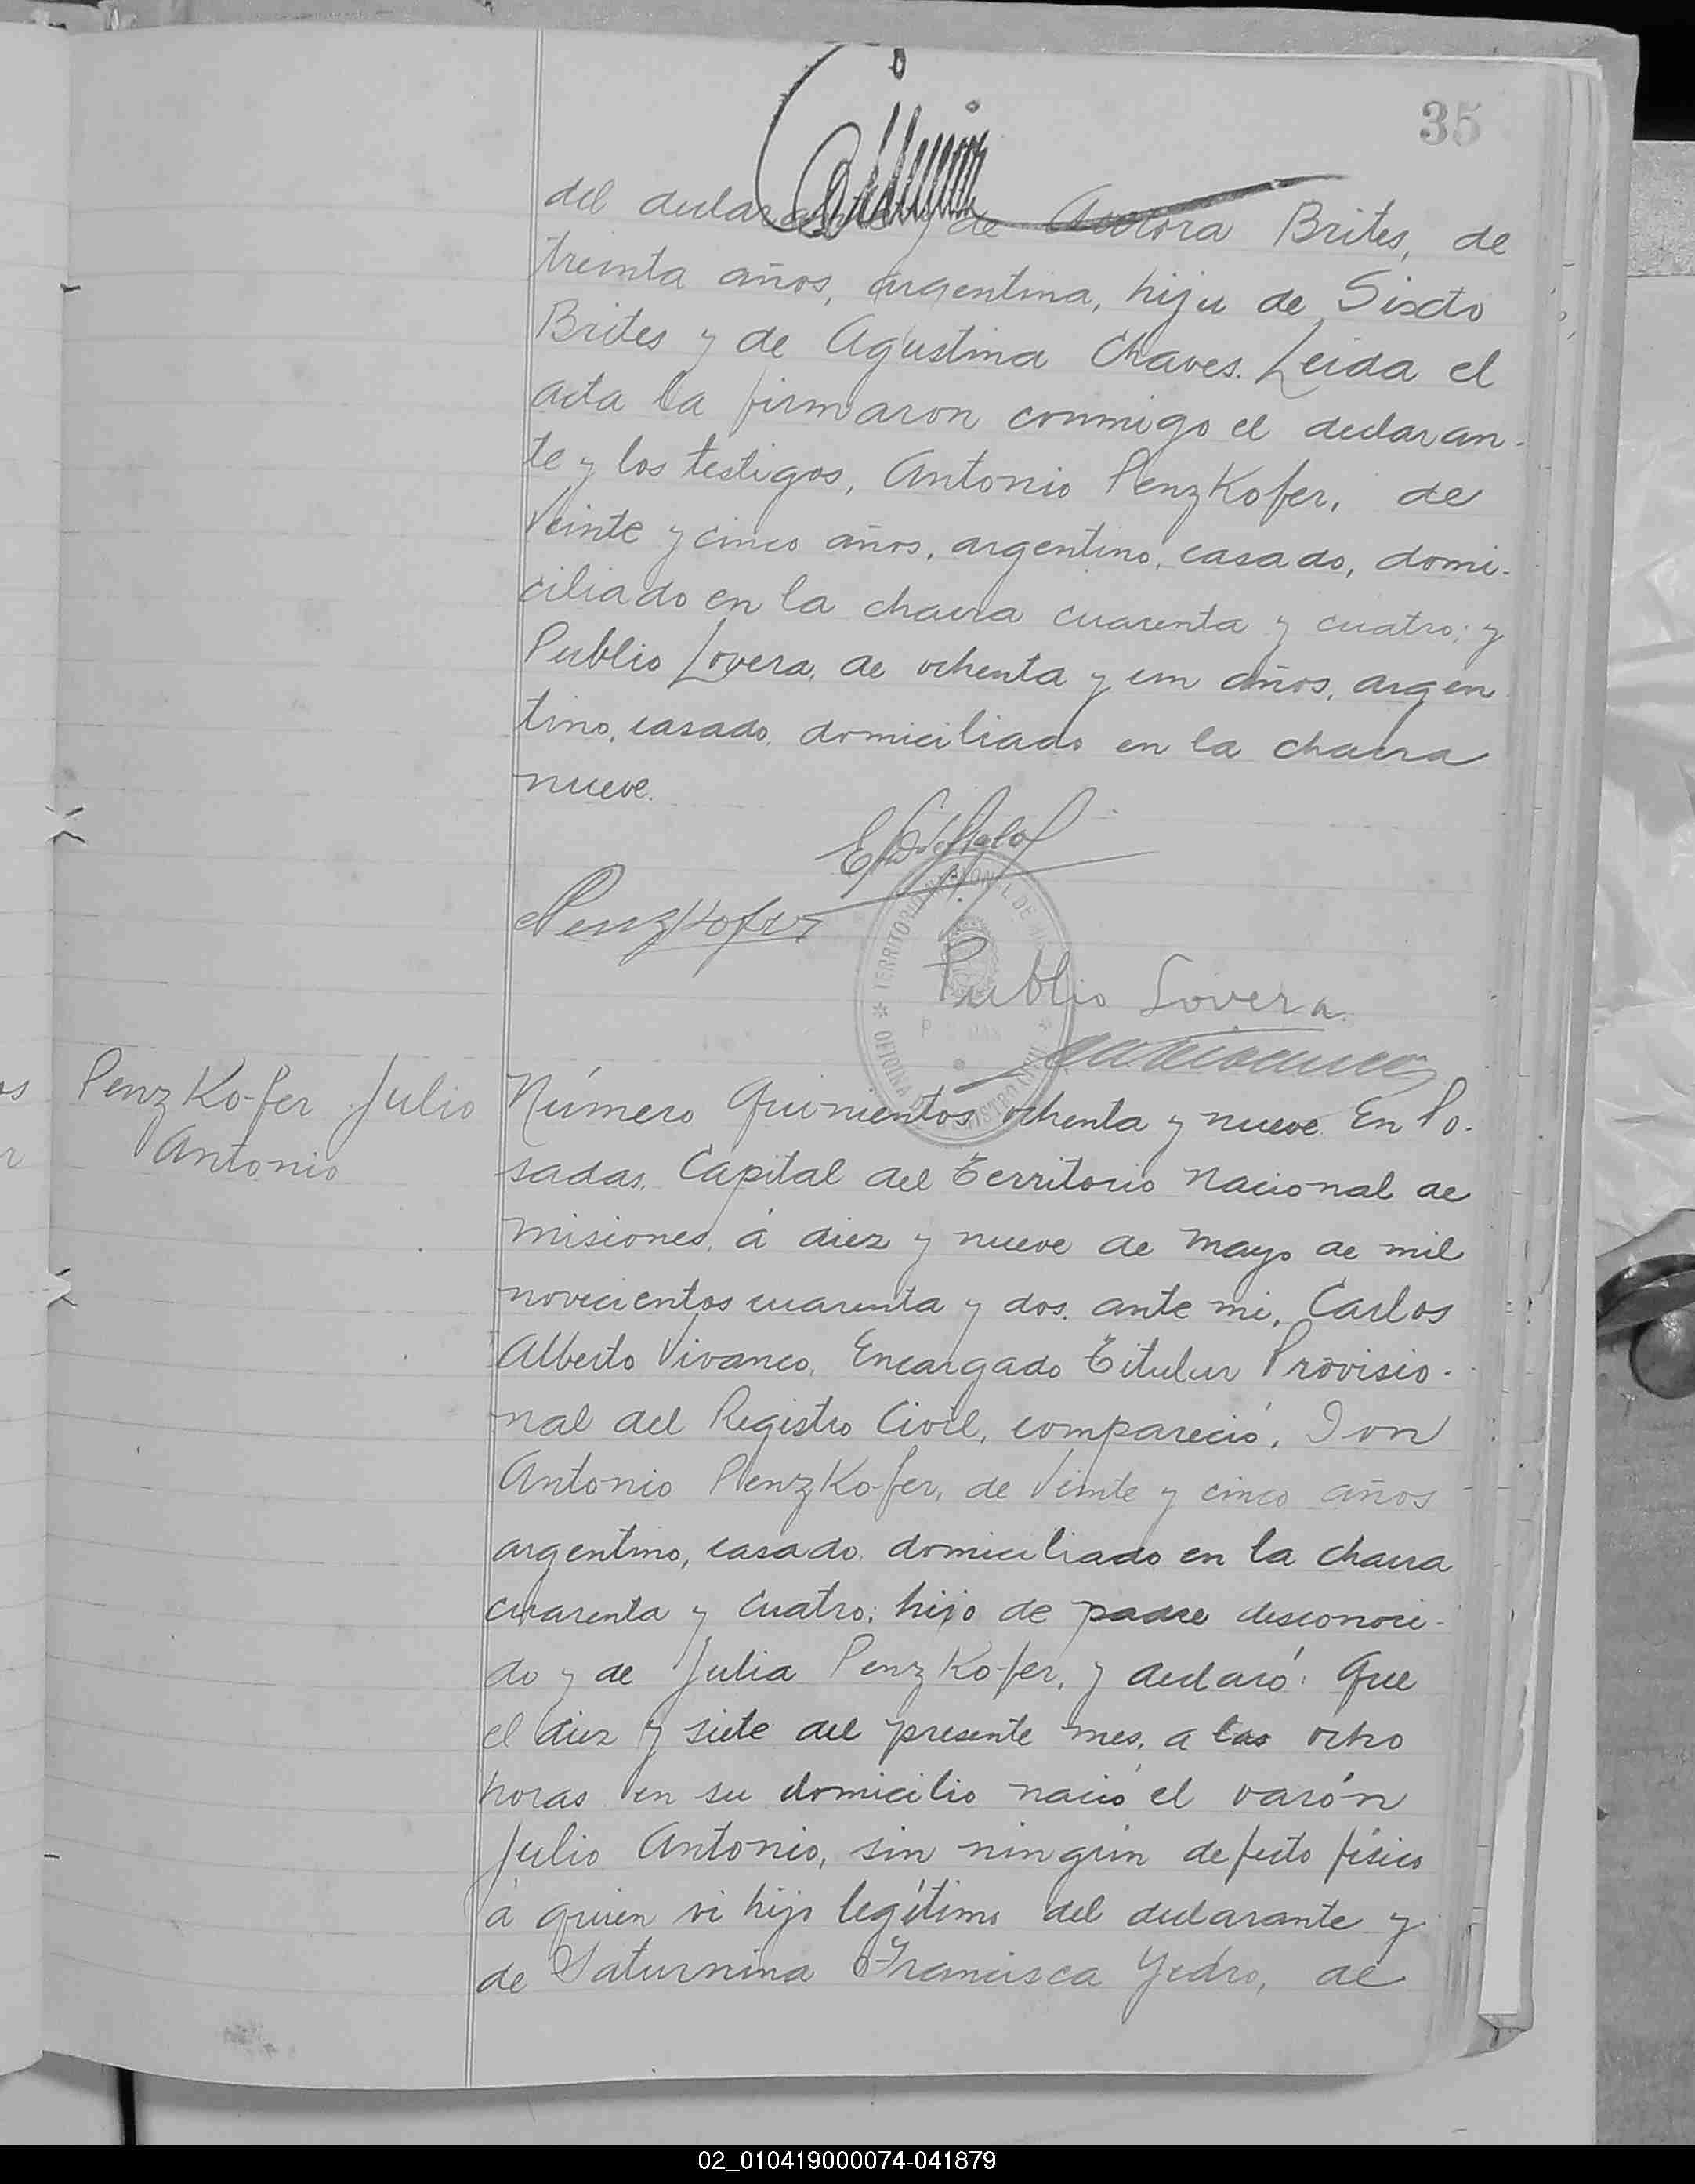 35
del declarante y de Aurora Brites, de
treinta años, argentina, hija de Sixto
Brites y de Agustina Chaves. Leida el
acta la firmaron conmigo el declaran-
te y los testigos, Antonio PenzKofer, de
veinte y cinco años, argentino, casado, domi-
ciliado en la chacra cuarenta y cuatro; y
Publio Lovera, de ochenta y un años, argen
tino, casado, domiciliado en la chacra
nueve.
APenzKofer
TERRITORIO NACIONAL DE MI
OFICINA DEL REGISTRO CIVIL
Publio Lovera.
PenzKofer Julio
Antonio
Número Quinientos ochenta y nueve. En Po-
sadas, Capital del Territorio Nacional de
Misiones, á diez y nueve de Mayo de mil
novecientos cuarenta y dos, ante mi, Carlos
Alberto Vivanco, Encargado Titular Provisio-
nal del Registro Civil, compareció, Don
Antonio PenzKofer, de veinte y cinco años
argentino, casado, domiciliado en la chacra
cuarenta y cuatro; hijo de padre desconoci-
do y de Julia PenzKofer, y declaró: Que
el diez y siete del presente mes, a las ocho
horas en su domicilio nació el varón
Julio Antonio, sin ningún defecto físico
á quien vi hijo legítimo del declarante y
de Saturnina Francisca Yedro, de
02_010419000074-041879